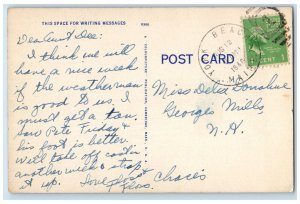 THIS SPACE FOR WRITING MESSAGES
Dear Aunt Dee:
I think we will
have a nice week
if the weatherman
is good to us. I
must get a tan.
Saw Pete Friday &
his foot is better.
Will take off cast in
another week & strap
it up. Love,
Chases
POST CARD
YORK BEACH
1940
1 CENT 1
Miss Delia Donahue
Georges Mills
N.H.